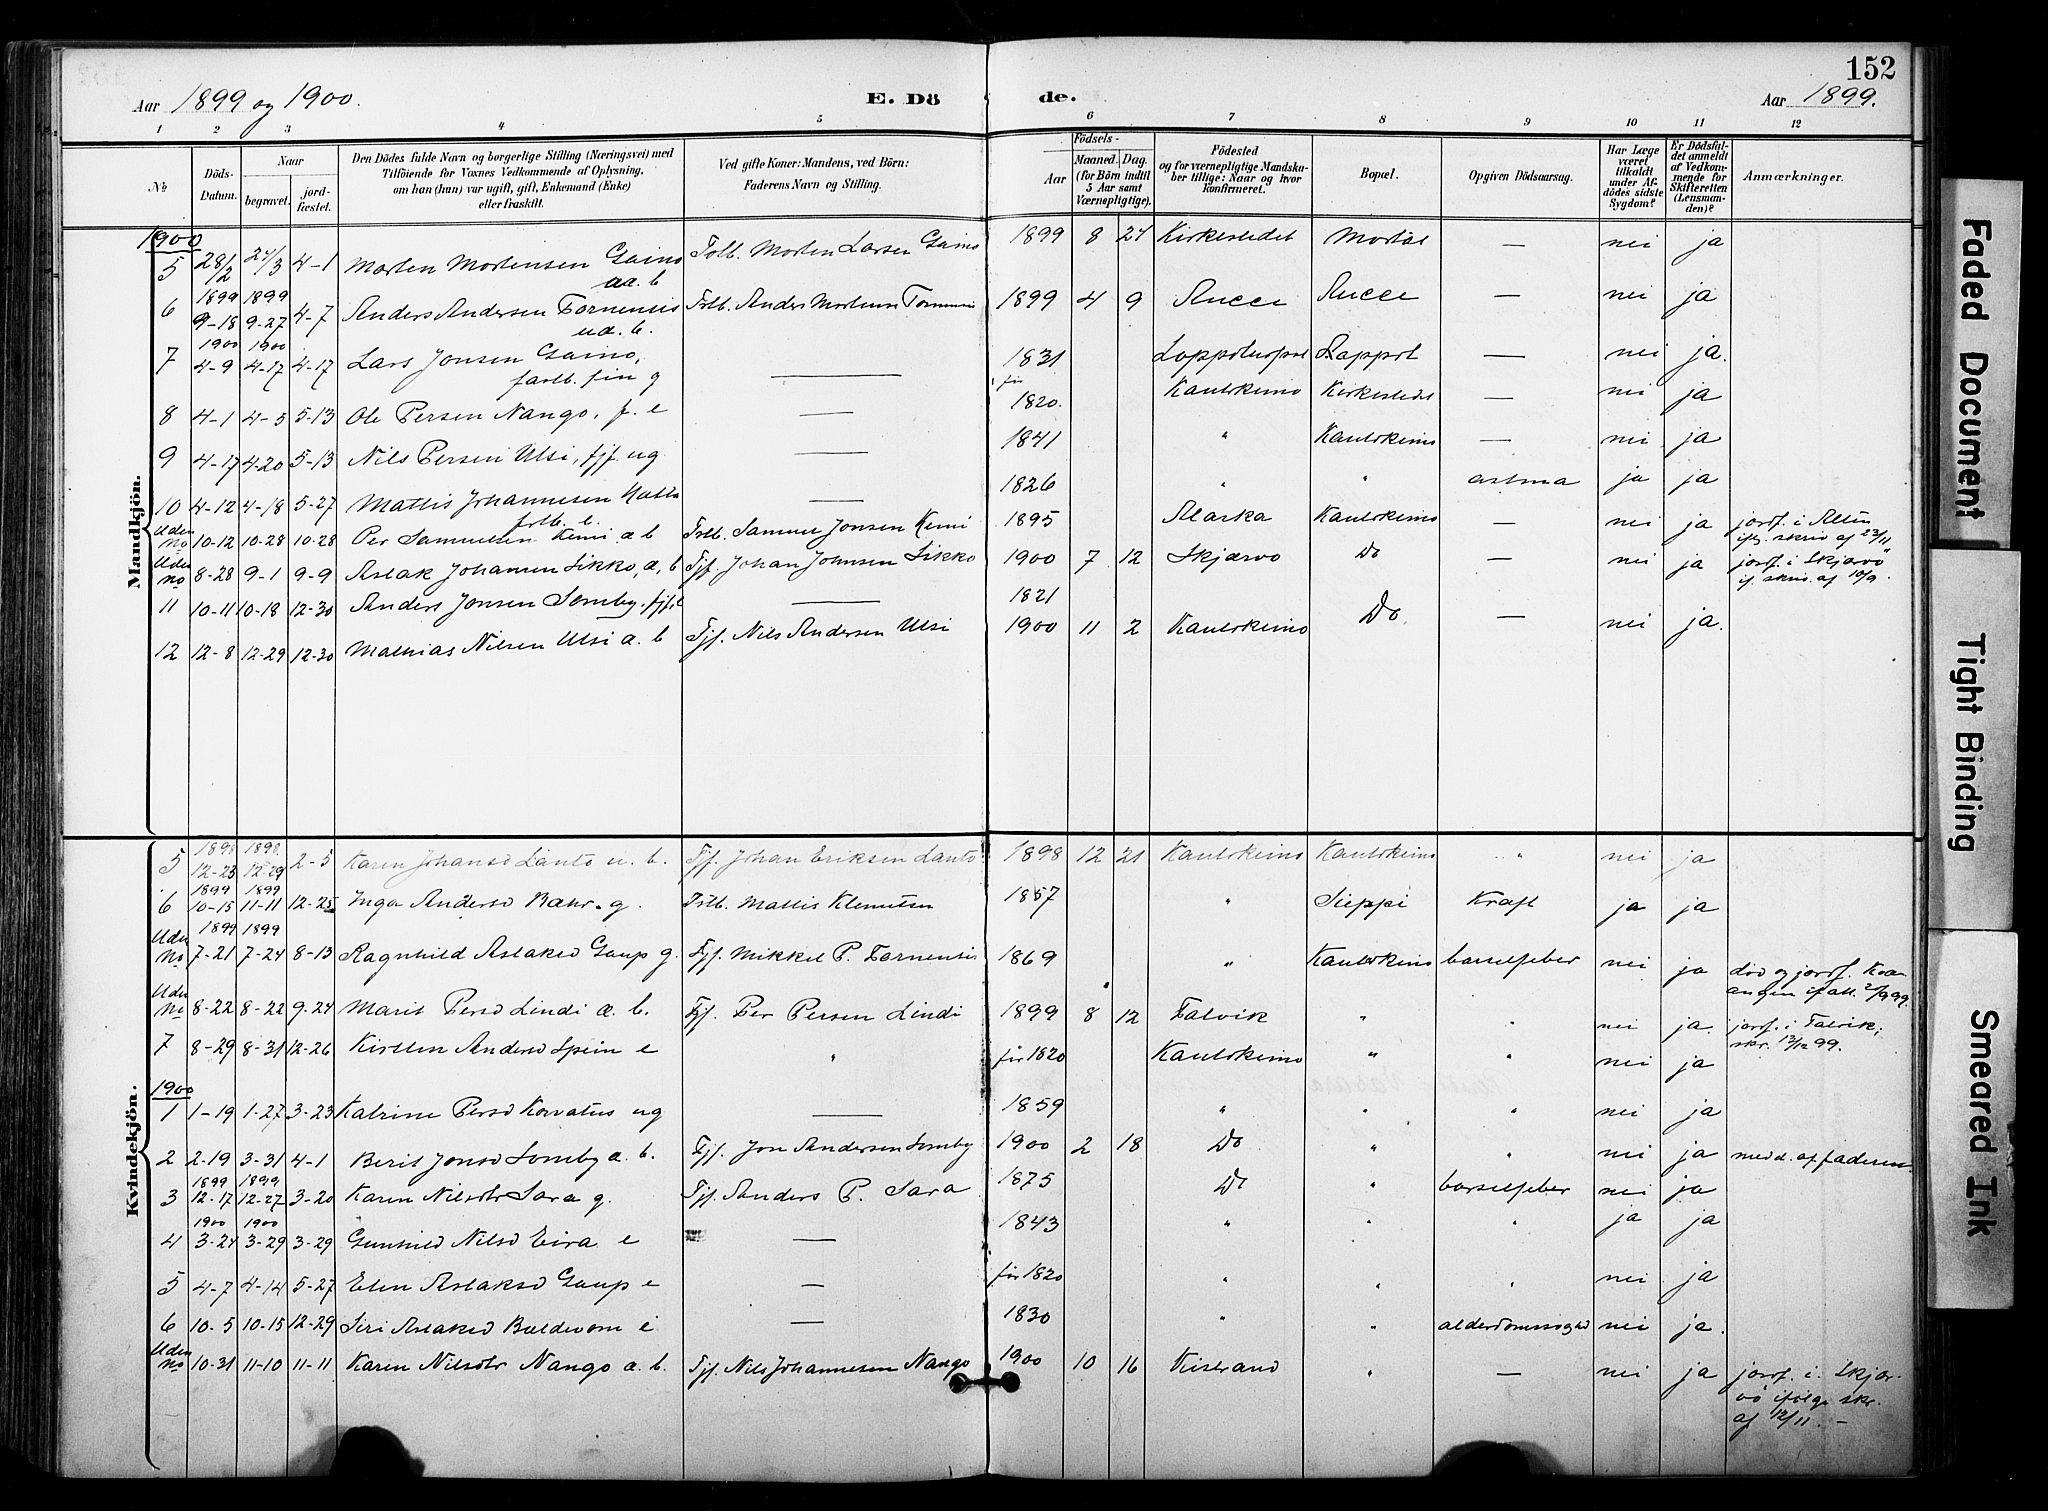 152
Aar 1899 og 1900.
E. Dö de.
Aar 1899.
1 2 3 4 5 6 7 8 9 10 11 12
No
Döds-Datum.
Naar
begravet.
jord-fæstet.
Den Dödes fulde Navn og borgerlige Stilling (Næringsvei) med
Tilföiende for Voxnes Vedkommende af Oplysning,
om han (hun) var ugift, gift, Enkemand (Enke)
eller fraskilt.
Ved gifte Koner: Mandens, ved Börn:
Faderens Navn og Stilling.
Födsels-
Aar
Maaned. Dag.
(for Börn indtil
5 Aar samt
Værnepligtige).
Födested
og for værnepligtige Mandska-
ber tillige: Naar og hvor
konfirmeret.
Bopæl.
Opgiven Dödsaarsag.
Har Læge
været
tilkaldt
under Af-
dödes sidste
Sygdom?
Er Dödsfal-
det anmeldt
af Vedkom-
mende for
Skifteretten
(Lensman-
den)?
Anmærkninger.
Mandkjön.
1900
5 28/2 24/3 4-1 Morten Mortensen Gaino æ. b Fstb. Morten Larsen Gaino 1899 8 24 Kirkestedet — nei ja
6 1899 9-18 1899 9-27 4-7 Anders Andersen Tornensis æ. b. Fstb. Anders Mortensen 1899 4 9 Aucce Aucce — nei ja
7 1900 4-9 1900 4-17 4-17 Lars Jonsen Gaino, fastb. fin g — 1831 — nei ja.
8 4-1 4-5 5-13 Ole Persen Nango, f. e — før 1820. Kautokeino Kirkestedet — nei ja
9 4-17 4-20 5-13 Nils Persen Utsi, fjf. ug — 1841 " Kautokeino — nei ja
10 4-12 4-18 5-27 Mattis Johannesen Hætta fstb. e. — 1826 " " astma ja ja
Uden No 10-12 10-28 10-28 Per Samuelsen Kemi æ b Fstb. Samuel Jonsen Kemi 1895 Alaska Kautokeino — nei ja jordf. i Alten ifl. skriv af 23/11
Uden No 8-28 9-1 9-9 Aslak Johansen Sikko, æ, b Fjf. Johan Johnsen Sikko 1900 7 12 Skjærvø Do — nei ja jordf. i Skjærvø if. skriv. af 10/9.
11 10-11 10-18 12-30 Anders Jonsen Somby, fjf. e — 1821
12 12-8 12-29 12-30 Mathias Nilsen Utsi æ. b Fjf. Nils Andersen Utsi 1900 11 2 Kautokeino Do. — nei ja.
Kvindekjön.
5 1898 12-23 1898 12-29 2-5 Karen Johansd Lanto u. b. Fjf. Johan Eriksen Lanto 1898 12 21 Kautokeino Kautokeino " nei ja
6 1899 10-15 1899 11-11 12-25 Inga Andersd Bæhr. g. Fstb. Mattis Klemetsen 1857 " Sieppi Kræft ja ja
Uden No 1899 7-21 1899 7-24 8-13 Ragnhild Aslaksd Gaup g. Fjf. Mikkel P. Tornensis 1869 " Kautokeino barselfeber nei ja død og jordf. Kvæ-
angen if. att. 2/9 99.
Uden No 8-22 8-22 9-24 Marit Persd Lindi æ. b. Fjf. Per Persen Lindi 1899 8 12 Talvik " " nei ja. jordf. i Talvik; skr. 13/12 99.
7 8-29 8-31 12-26 Kirsten Andersd Spein e " før 1820 Kautokeino " " nei ja
1900
1 1-19 1-27 3-23 Katrine Persd Korvatus ug — 1859 " " " nei ja
2 2-19 3-31 4-1 Berit Jonsd Somby æ. b. Fjf. Jon Andersen Somby 1900 2 18 Do " " nei ja medd. af faderen
3 1899 12-17 1899 12-27 3-20 Karen Nilsdtr Sara g. Fjf. Anders P. Sara 1875 Do " barselfeber nei ja
4 1900 3-24 1900 3-29 3-29 Gunhild Nilsd Eira e — 1843 " " " ja ja
5 4-7 4-14 5-27 Elen Aslaksd Gaup e — før 1820 " " " nei ja
6 10-5 10-15 12-29 Siri Aslaksd e — 1830 " " nei ja.
Uden No 10-31 11-10 11-11 Karen Nilsdtr Nango æ. b. Fjf. Nils Johannesen Nango 1900 10 16 Kistrand " — nei ja jordf. i. Skjær-
vö ifölge skr.
af 12/11. –
Faded Document
Tight Binding
Smeared Ink